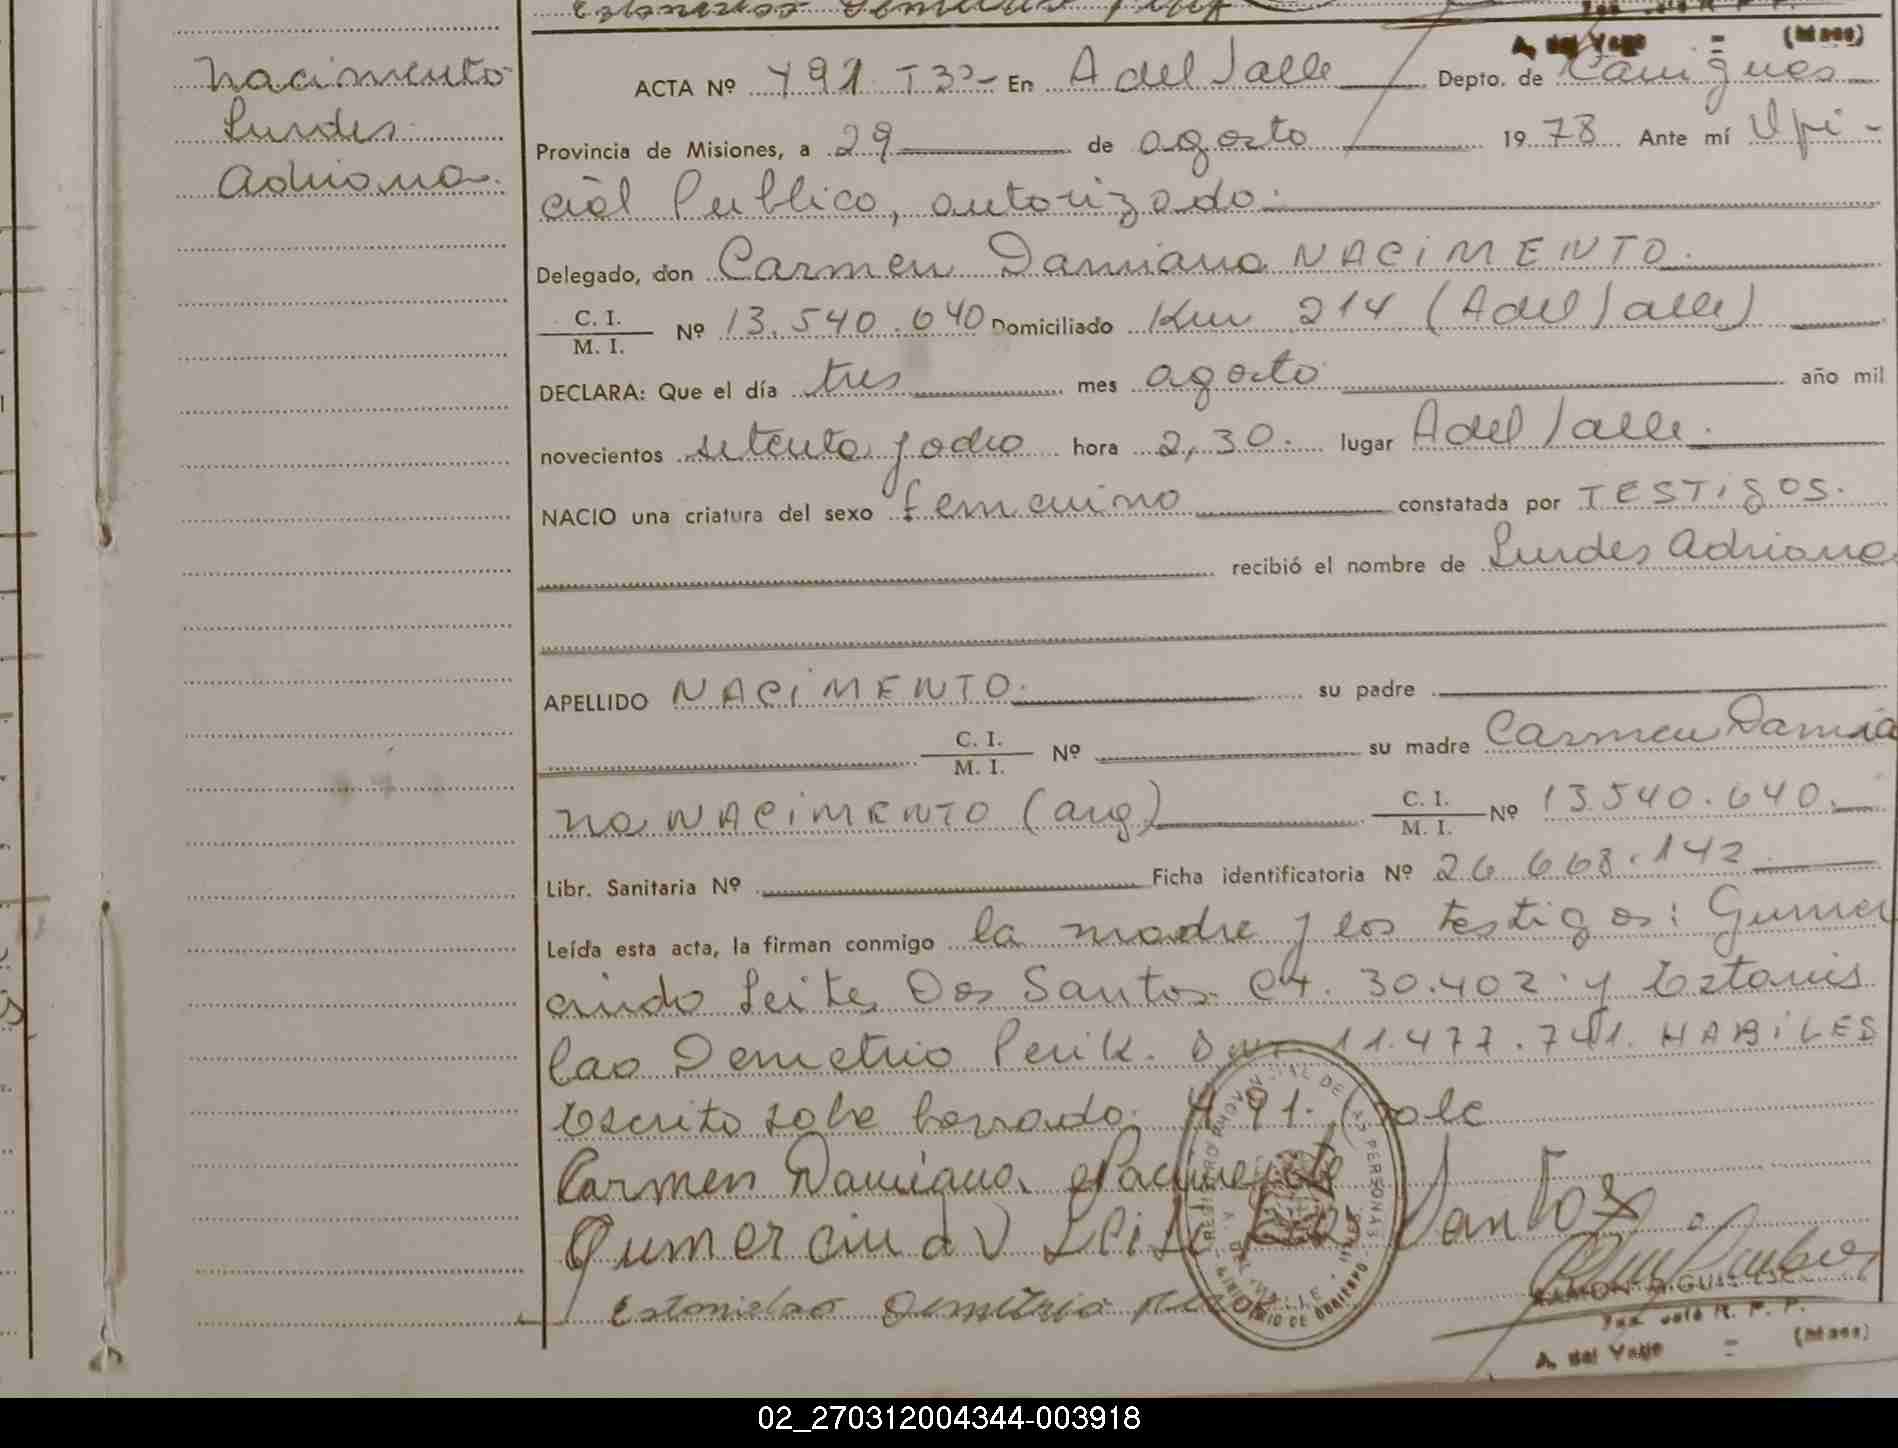 Nacimento
Lurdes
Adriana.
A. del Valle = (Mnes)
ACTA Nº 491 T3º- En A del Valle Depto. de Cainguas
Provincia de Misiones, a 29 de agosto 1978 Ante mí Ofi-
cial Publico, autorizado.
Delegado, don Carmen Damiana NACIMENTO.
C. I.
M. I. Nº 13.540.640 Domiciliado Km 214 (A del Valle)
DECLARA: Que el día tres mes agosto año mil
novecientos setenta y ocho hora 2,30. lugar A del Valle.
NACIO una criatura del sexo femenino constatada por TESTIGOS.
recibió el nombre de Lurdes Adriana
APELLIDO NACIMENTO. su padre
C. I.
M. I. Nº su madre Carmen Damia
na NACIMENTO (arg) C. I.
M. I. Nº 13.540.640.
Libr. Sanitaria Nº Ficha identificatoria Nº 26.668.142
Leída esta acta, la firman conmigo la madre y los testigos: Gumer
cindo Leites Dos Santos. C.I. 30.402. y Estanis
lao Demetrio Perik. DNI 11.477.741. HABILES
Escrito sobre borrado. 491. vale
Carmen Damiana Nacimento
Gumercindo Leites Dos Santos
Estanislao Demetrio
REGISTRO PROVINCIAL DE LAS PERSONAS
MINISTERIO DE GOBIERNO
A. del Valle = (Mnes)
02_270312004344-003918